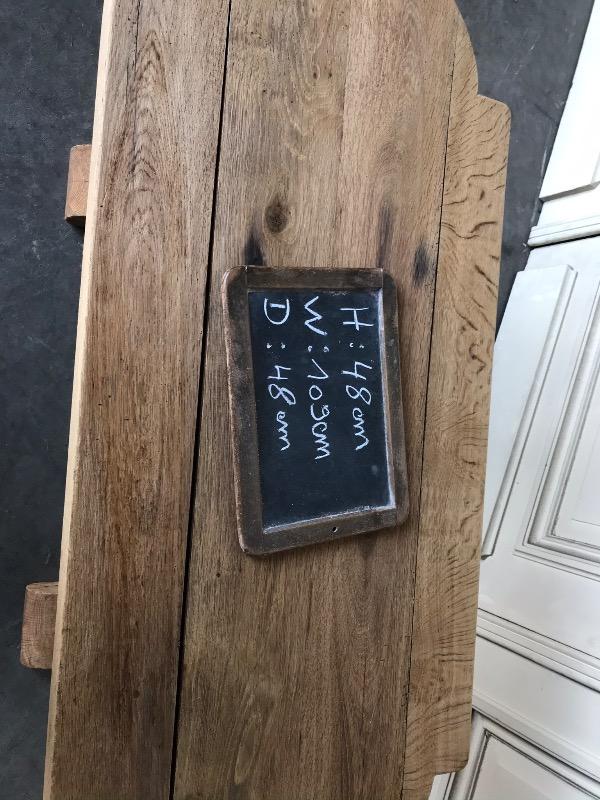 H: 48cm
W: 109cm
D: 48cm